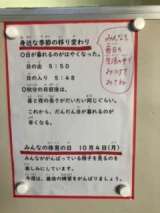 身近な季節の移り変わり
○日が暮れるのがはやくなった。
日の出 5:50
日の入り 5:48
○秋分の日前後は、
昼と夜の長さがだいたい同じぐらい。
これから、だんだん日が暮れるのが
早くなる。
みんなの体育の日 10月4日(月)
みんながんばっている様子を見るの
を楽しみにしています。
今週は、最後の練習をがんばりましょう。
みんなも
毎日の
生活の中で
みつけて
みてね